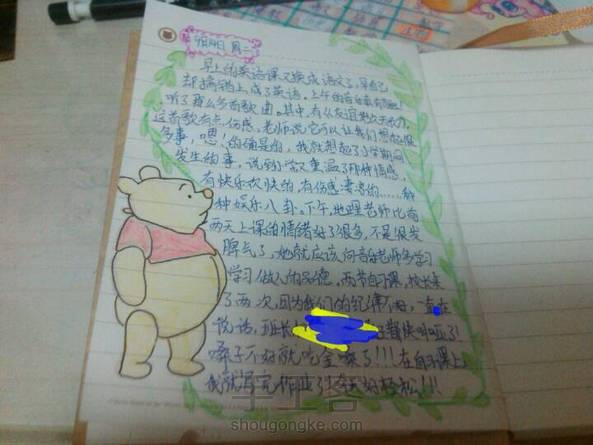 早上的英语课又换成语文了，早自己
却搞错上成了英语，上午的音乐最有趣
听了那么多首歌曲。其中，有从友谊地久天长
这首歌有点伤感，老师说它可以让我们想起很
多事，嗯！的确是的，我就想起了小学期间
发生的事，说到小学又重温了那种情感，
有快乐欢快的，有伤感凄凄的……种
种娱乐八卦。下午，地理老师比前
两天上课的情绪好了很多，不是很发
脾气了，她就应该向音乐老师多学习
学习做人的品德，两节自习课，校长来
了两次，因为我们的纪律不好，一直在
说话，班长 替快叫哑了！
嗓子不好就吃金嗓了！！！在自习课上
我就写完作业了！今天好轻松！！！
手工客
shougongke.com